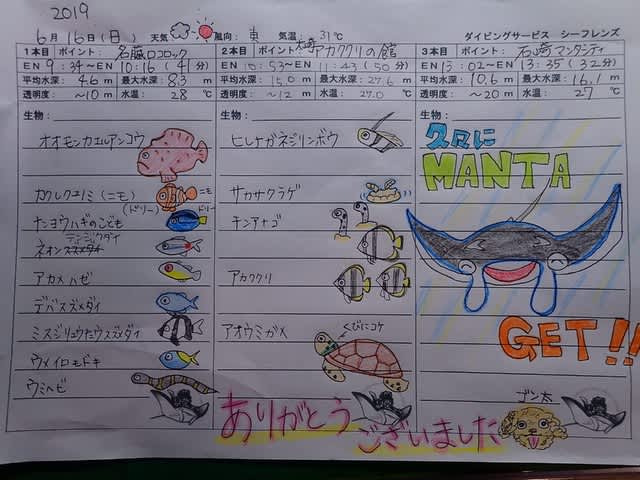 2019
6月 16日(日) 天気 風向: 東 気温: 31℃ ダイビングサービス シーフレンズ
1本目 ポイント: 名蔵ロロロック
EN 9:34〜EN 10:16 (41分)
平均水深: 4.6 m 最大水深: 8.3 m
透明度: 〜10 m 水温: 28 ℃
生物:
オオモンカエルアンコウ
カクレクマノミ(ニモ) ニモ
(ドリー) ドリー
ナンヨウハギのこども
ネオンテンジクダイ
アカメハゼ
デバスズメダイ
ミスジリュウキュウスズメダイ
ウメイロモドキ
ウミヘビ
2本目 ポイント: 大崎アカククリの館
EN 10:53〜EN 11:43 (50分)
平均水深: 15.0 m 最大水深: 27.6 m
透明度: 〜12 m 水温: 27.0 ℃
生物:
ヒレナガネジリンボウ
サカサクラゲ
チンアナゴ
アカククリ
アオウミガメ くびにコケ
3本目 ポイント: 石崎マンタシティ
EN 13:02〜EN 13:35 (32分)
平均水深: 10.6 m 最大水深: 16.1 m
透明度: 〜20 m 水温: 27 ℃
生物:
久々に
MANTA
GET!!
ゴン太
ありがとう
ございました